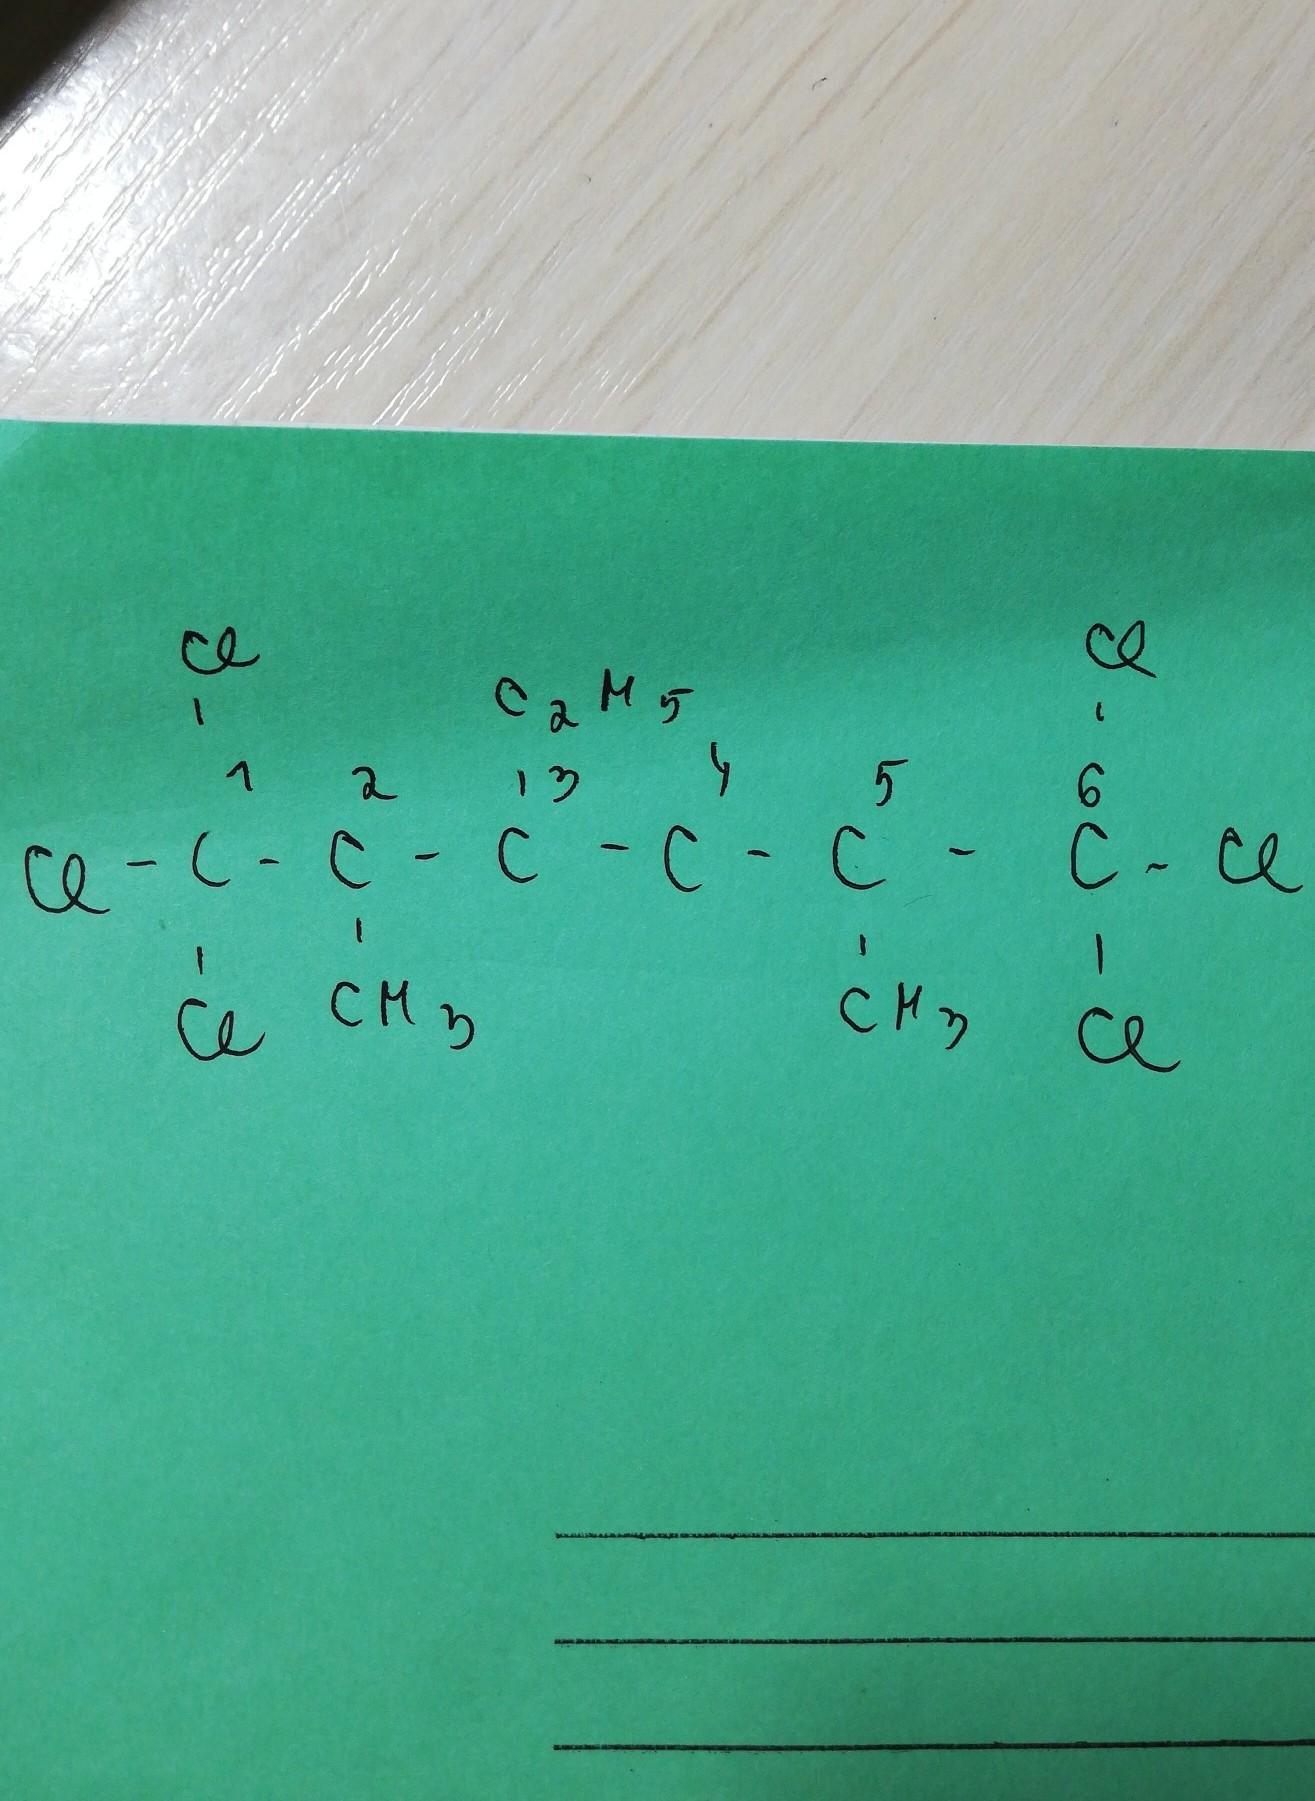 Cl Cl
C2H5
1 2 3 4 5 6
Cl - C - C - C - C - C - C - Cl
Cl CH3 CH3 Cl